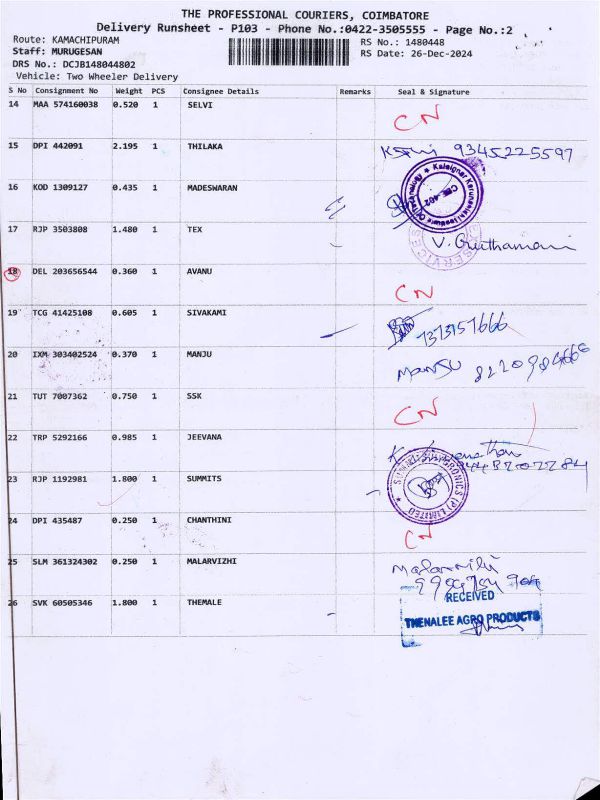 THE PROFESSIONAL COURIERS, COIMBATORE
Delivery Runsheet - P103 - Phone No.:0422-3505555 - Page No.:2
Route: KAMACHIPURAM RS No.: 1480448
Staff: MURUGESAN RS Date: 26-Dec-2024
DRS No.: DCJB148044802
Vehicle: Two Wheeler Delivery
S No Consignment No Weight PCS Consignee Details Remarks Seal & Signature
14 MAA 574160038 0.520 1 SELVI CN
15 DPI 442091 2.195 1 THILAKA 9345225597
16 KOD 1309127 0.435 1 MADESWARAN CBE-402
17 RJP 3503808 1.480 1 TEX V.
18 DEL 203656544 0.360 1 AVANU CN
19 TCG 41425108 0.605 1 SIVAKAMI 7373757666
20 IXM 303402524 0.370 1 MANJU
21 TUT 7007362 0.750 1 SSK CN
22 TRP 5292166 0.985 1 JEEVANA
23 RJP 1192981 1.800 1 SUMMITS (P) LIMITED
24 DPI 435487 0.250 1 CHANTHINI CN
25 SLM 361324302 0.250 1 MALARVIZHI
26 SVK 60505346 1.800 1 THEMALE RECEIVED
THENALEE AGRO PRODUCTS